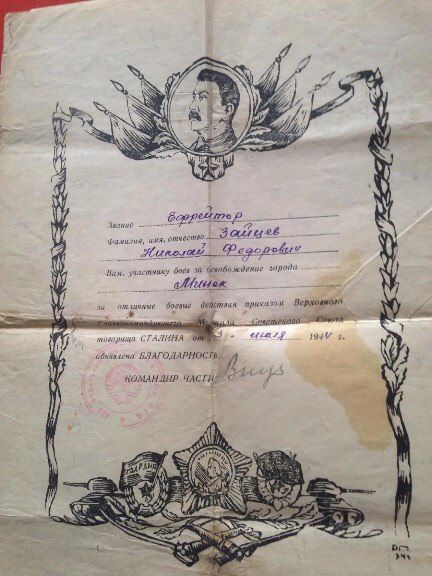 Звание Ефрейтор
Фамилия, имя, отчество Зайцев
Николай Федорович
Вам, участнику боев за освобождение города
Минск
за отличные боевые действия приказом Верховного
Главнокомандующего Маршала Советского Союза
товарища СТАЛИНА от 3 июля 1944 г.
объявлена БЛАГОДАРНОСТЬ.
КОМАНДИР ЧАСТИ
ГВАРДИЯ